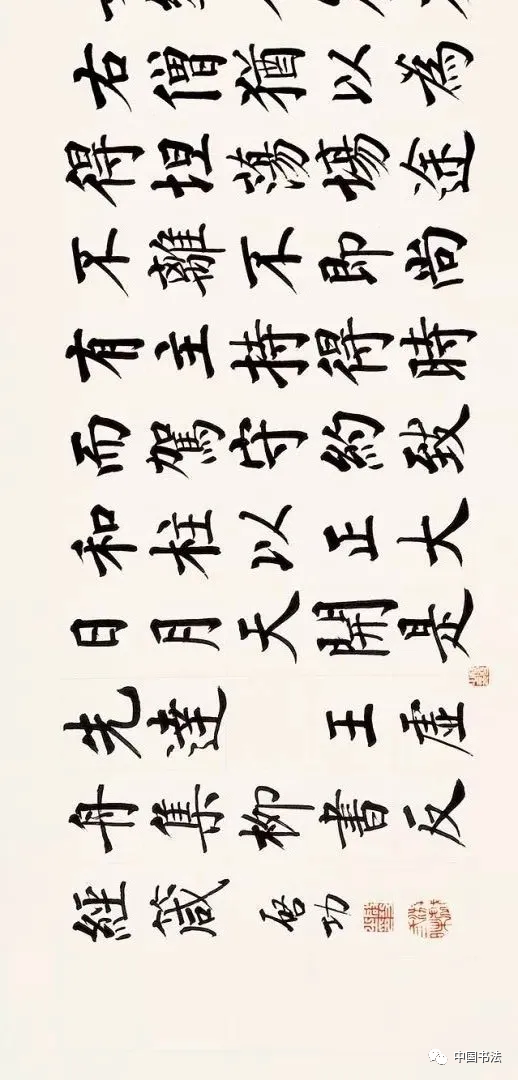 右僧猶以為
得坦蕩場途
不離不即尚
有主持得時
而駕守約致
和柱以正大
日月天開是
先達 王虛
舟集柳書反
經箴 啟功
中国书法